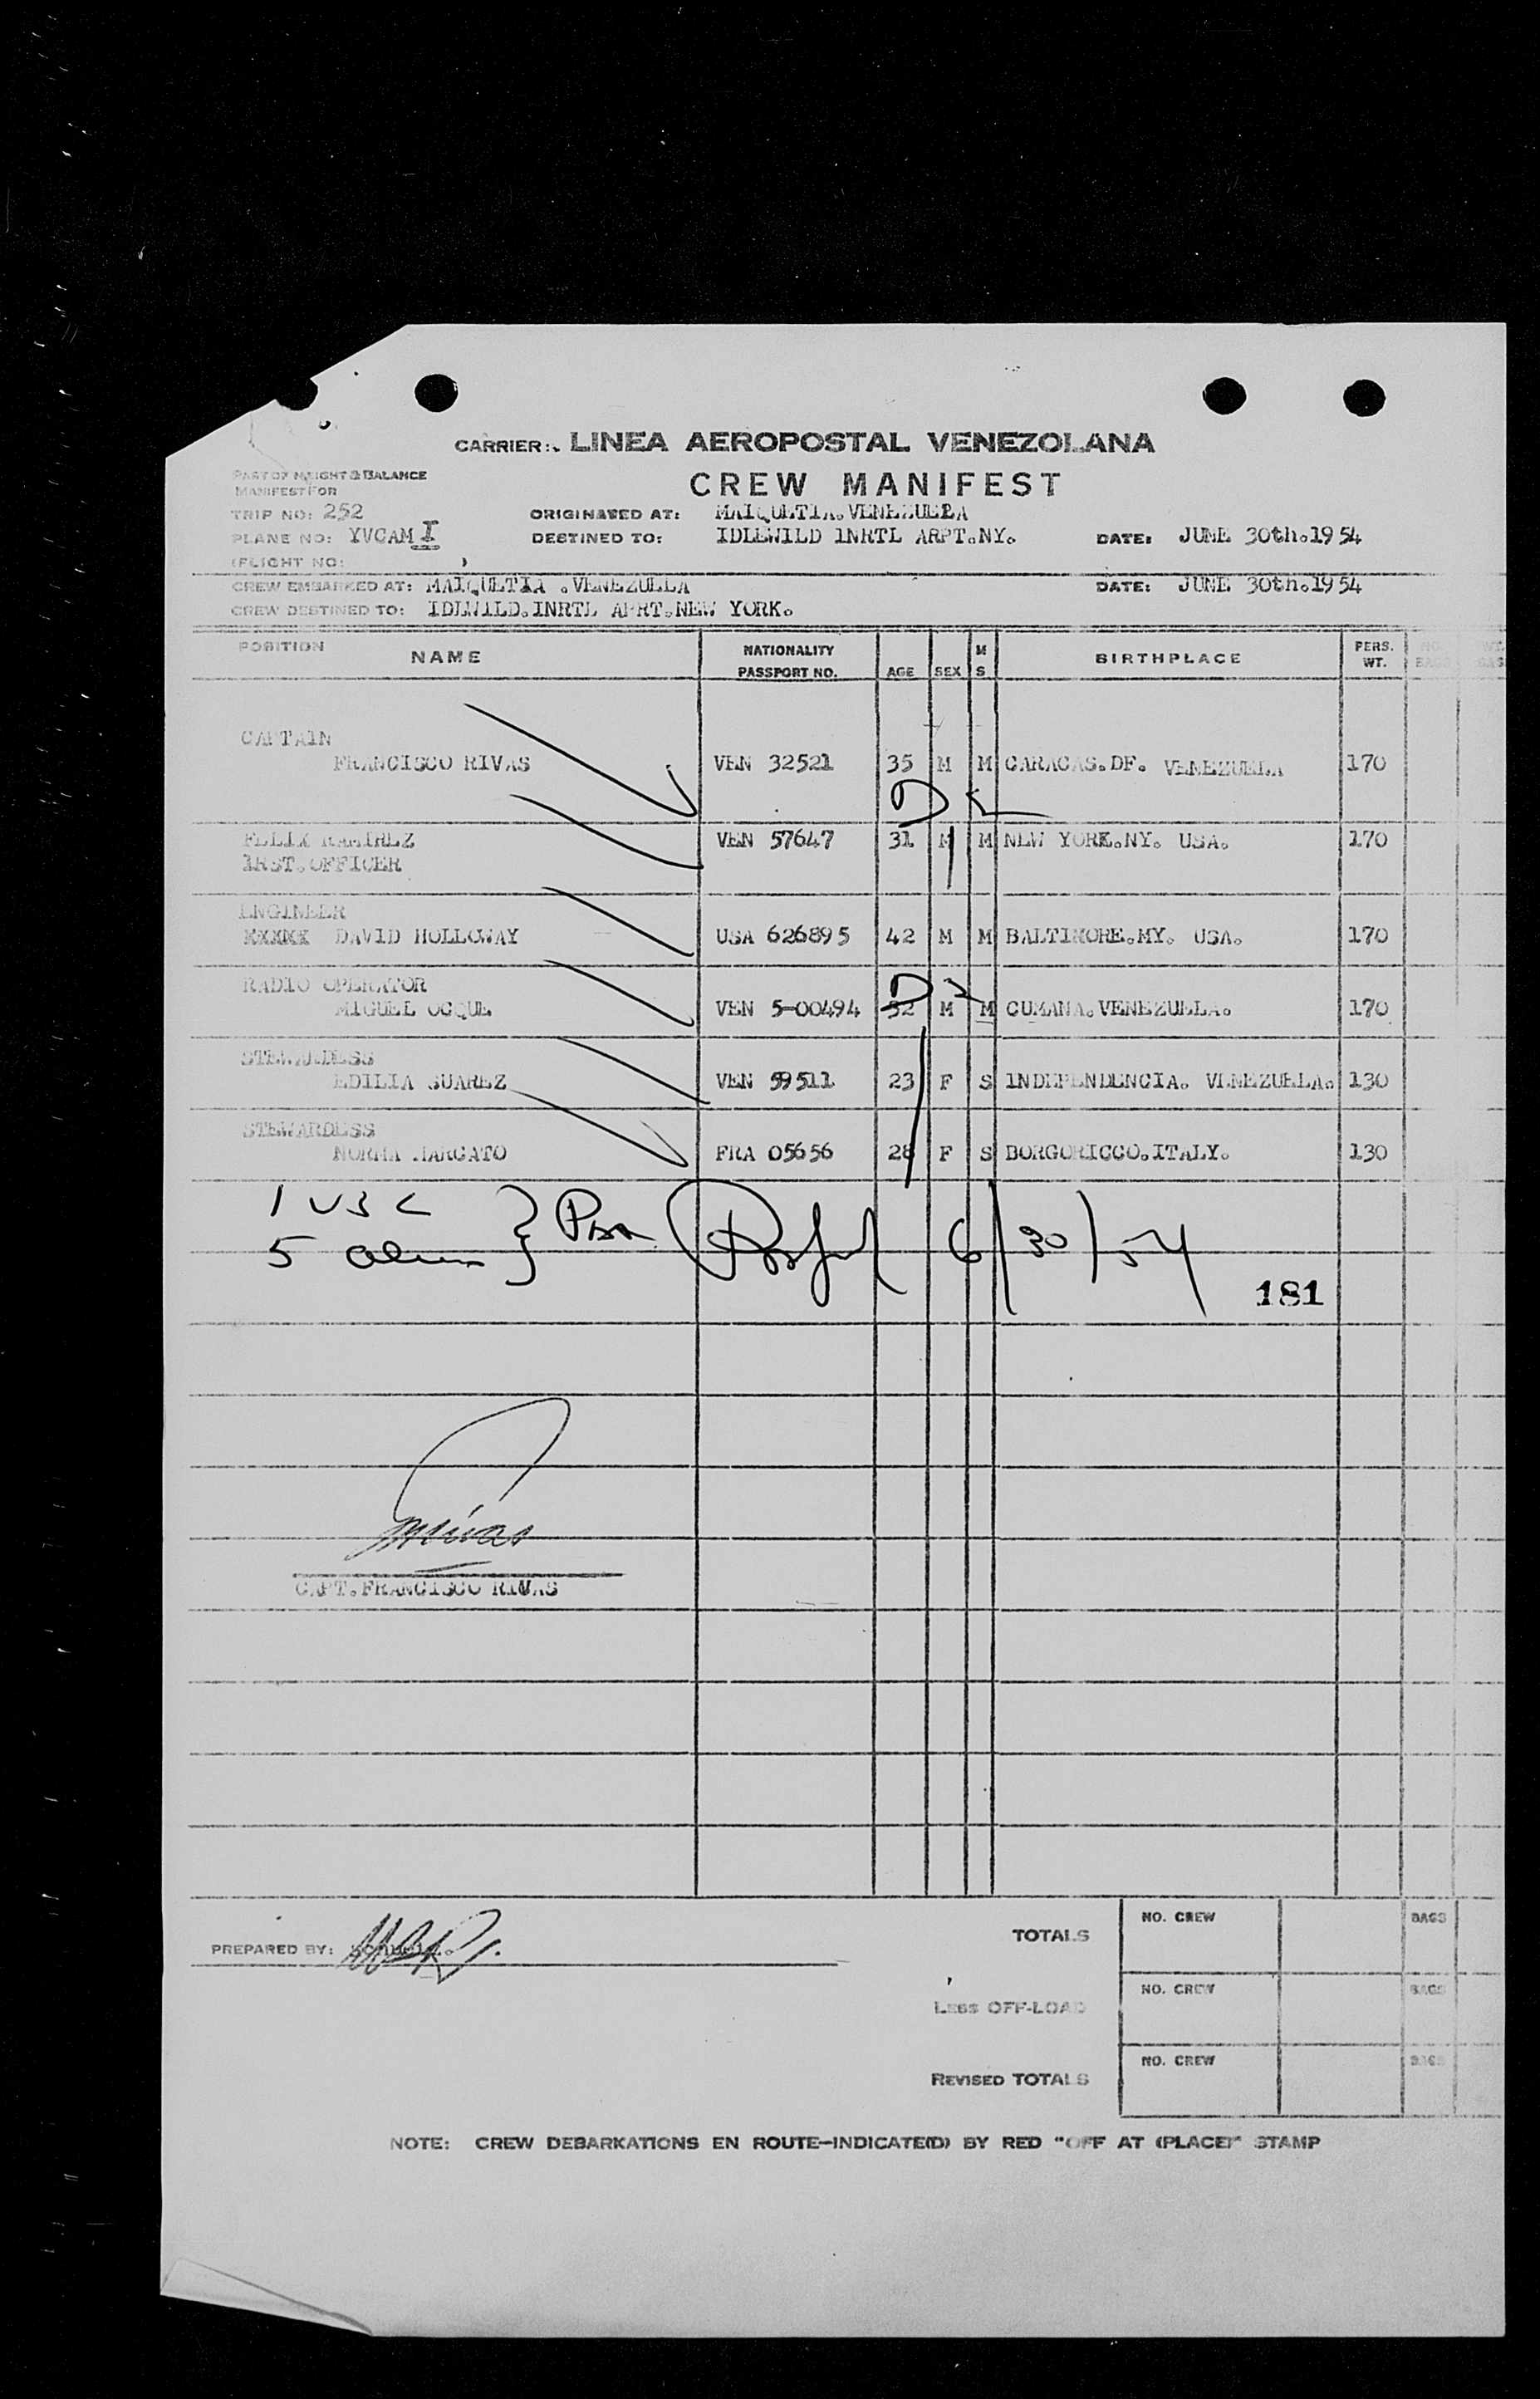 CARRIER: LINEA AEROPOSTAL VENEZOLANA
PART OF WEIGHT & BALANCE
MANIFEST FOR
CREW MANIFEST
TRIP NO: 252 ORIGINATED AT: MAIQUETIA.VENEZUELA
PLANE NO: YVCAM I DESTINED TO: IDLEWILD INRTL ARPT.NY. DATE: JUNE 30th.1954
(FLIGHT NO: )
CREW EMBARKED AT: MAIQUETIA .VENEZUELA DATE: JUNE 30th.1954
CREW DESTINED TO: IDLWILD.INRTL APRT.NEW YORK.
POSITION NAME NATIONALITY PASSPORT NO. AGE SEX M S BIRTHPLACE PERS. WT. NO. BAGS WT. BAGS
CAPTAIN
FRANCISCO RIVAS VEN 32521 35 M M CARACAS.DF. VENEZUELA 170
FELIX RAMIREZ VEN 57647 31 M M NEW YORK.NY. USA. 170
1RST.OFFICER
ENGINEER
XXXXX DAVID HOLLOWAY USA 626895 42 M M BALTIMORE.MY. USA. 170
RADIO OPERATOR
MIGUEL OCQUE VEN 5-00494 32 M M CUMANA.VENEZUELA. 170
STEWARDESS
EDILIA SUAREZ VEN 59511 23 F S INDEPENDENCIA. VENEZUELA. 130
STEWARDESS
NORMA MARCATO FRA 05656 28 F S BORGORICCO.ITALY. 130
1 USC
5 aliens } 6/30/54
181
CAPT.FRANCISCO RIVAS
PREPARED BY:
TOTALS NO. CREW BAGS
LESS OFF-LOAD NO. CREW BAGS
REVISED TOTALS NO. CREW BAGS
NOTE: CREW DEBARKATIONS EN ROUTE-INDICATE(D) BY RED "OFF AT (PLACE)" STAMP